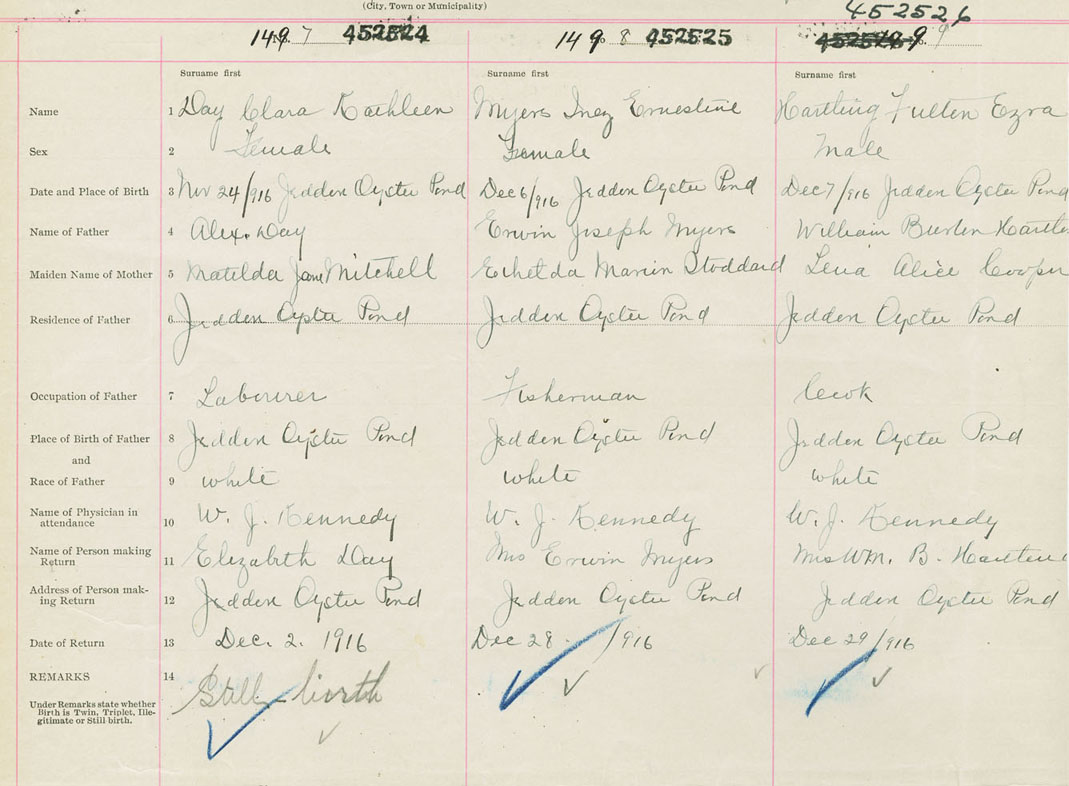 (City, Town or Municipality)
1497 452524 1498 452525 452526 1499
Surname first Surname first Surname first
Name 1 Day Clara Kathleen Myers Inez Ernestine Hartling Fulton Ezra
Sex 2 Female Female Male
Date and Place of Birth 3 Nov 24/916 Jeddon Oyster Pond Dec 6/916 Jeddon Oyster Pond Dec 7/916 Jeddon Oyster Pond
Name of Father 4 Alex. Day Erwin Joseph Myers William Burton
Maiden Name of Mother 5 Matilda Jane Mitchell Marion Stoddard Lena Alice Cooper
Residence of Father 6 Jeddon Oyster Pond Jeddon Oyster Pond Jeddon Oyster Pond
Occupation of Father 7 Labourer Fisherman Cook
Place of Birth of Father 8 Jeddon Oyster Pond Jeddon Oyster Pond Jeddon Oyster Pond
and
Race of Father 9 white white white
Name of Physician in
attendance 10 W. J. Kennedy W. J. Kennedy W. J. Kennedy
Name of Person making
Return 11 Elizabeth Day Mrs Erwin Myers Mrs WM. B.
Address of Person mak-
ing Return 12 Jeddon Oyster Pond Jeddon Oyster Pond Jeddon Oyster Pond
Date of Return 13 Dec. 2. 1916 Dec 28. /916 Dec 29/916
REMARKS 14 Still-birth
Under Remarks state whether
Birth is Twin, Triplet, Ille-
gitimate or Still-birth.